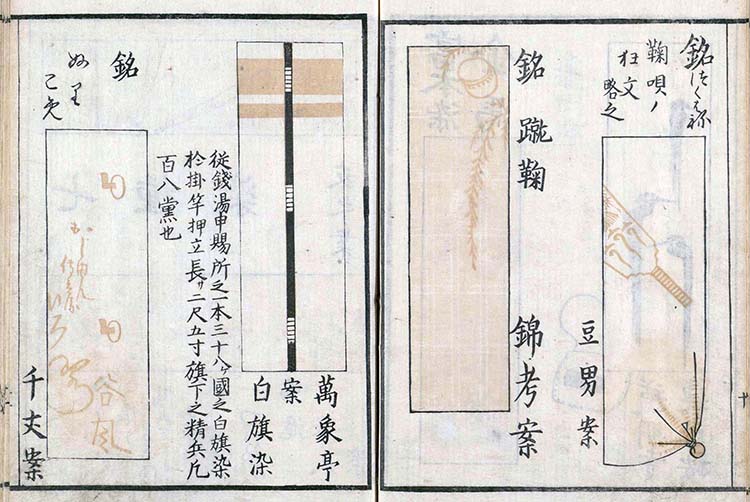 銘 つくばね
鞠唄ノ
狂文
略之
豆男案
銘 蹴鞠
錦考案
萬象亭
案
白旗染
従錢湯申賜所之一本三十八ヶ國之白旗染
於掛竿押立長サ二尺五寸旗下之精兵凡
百八黨也
銘
ぬり
谷風
千丈案